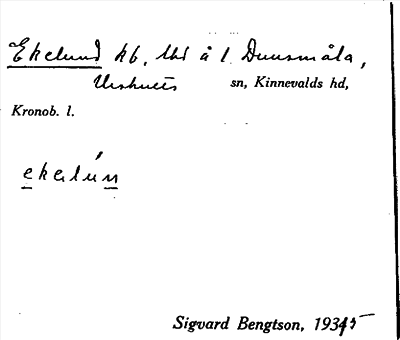 Ekelund kb, lht å l. Duusmåla,
Urshults sn, Kinnevalds hd,
Kronob. l.
ekəlún
Sigvard Bengtson, 1935